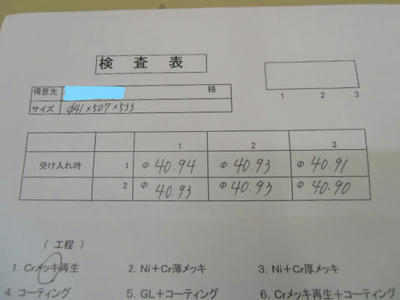 検査表
得意先 様
サイズ φ41×507×533
1 2 3
1 2 3
受け入れ時 1 φ40.94 φ40.93 φ40.91
2 φ40.93 φ40.93 φ40.90
(工程)
1. Crメッキ再生 2. Ni+Cr薄メッキ 3. Ni+Cr厚メッキ
4. コーティング 5. GL+コーティング 6. Crメッキ再生+コーティ